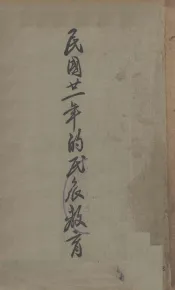 民國廿一年的民衆教育